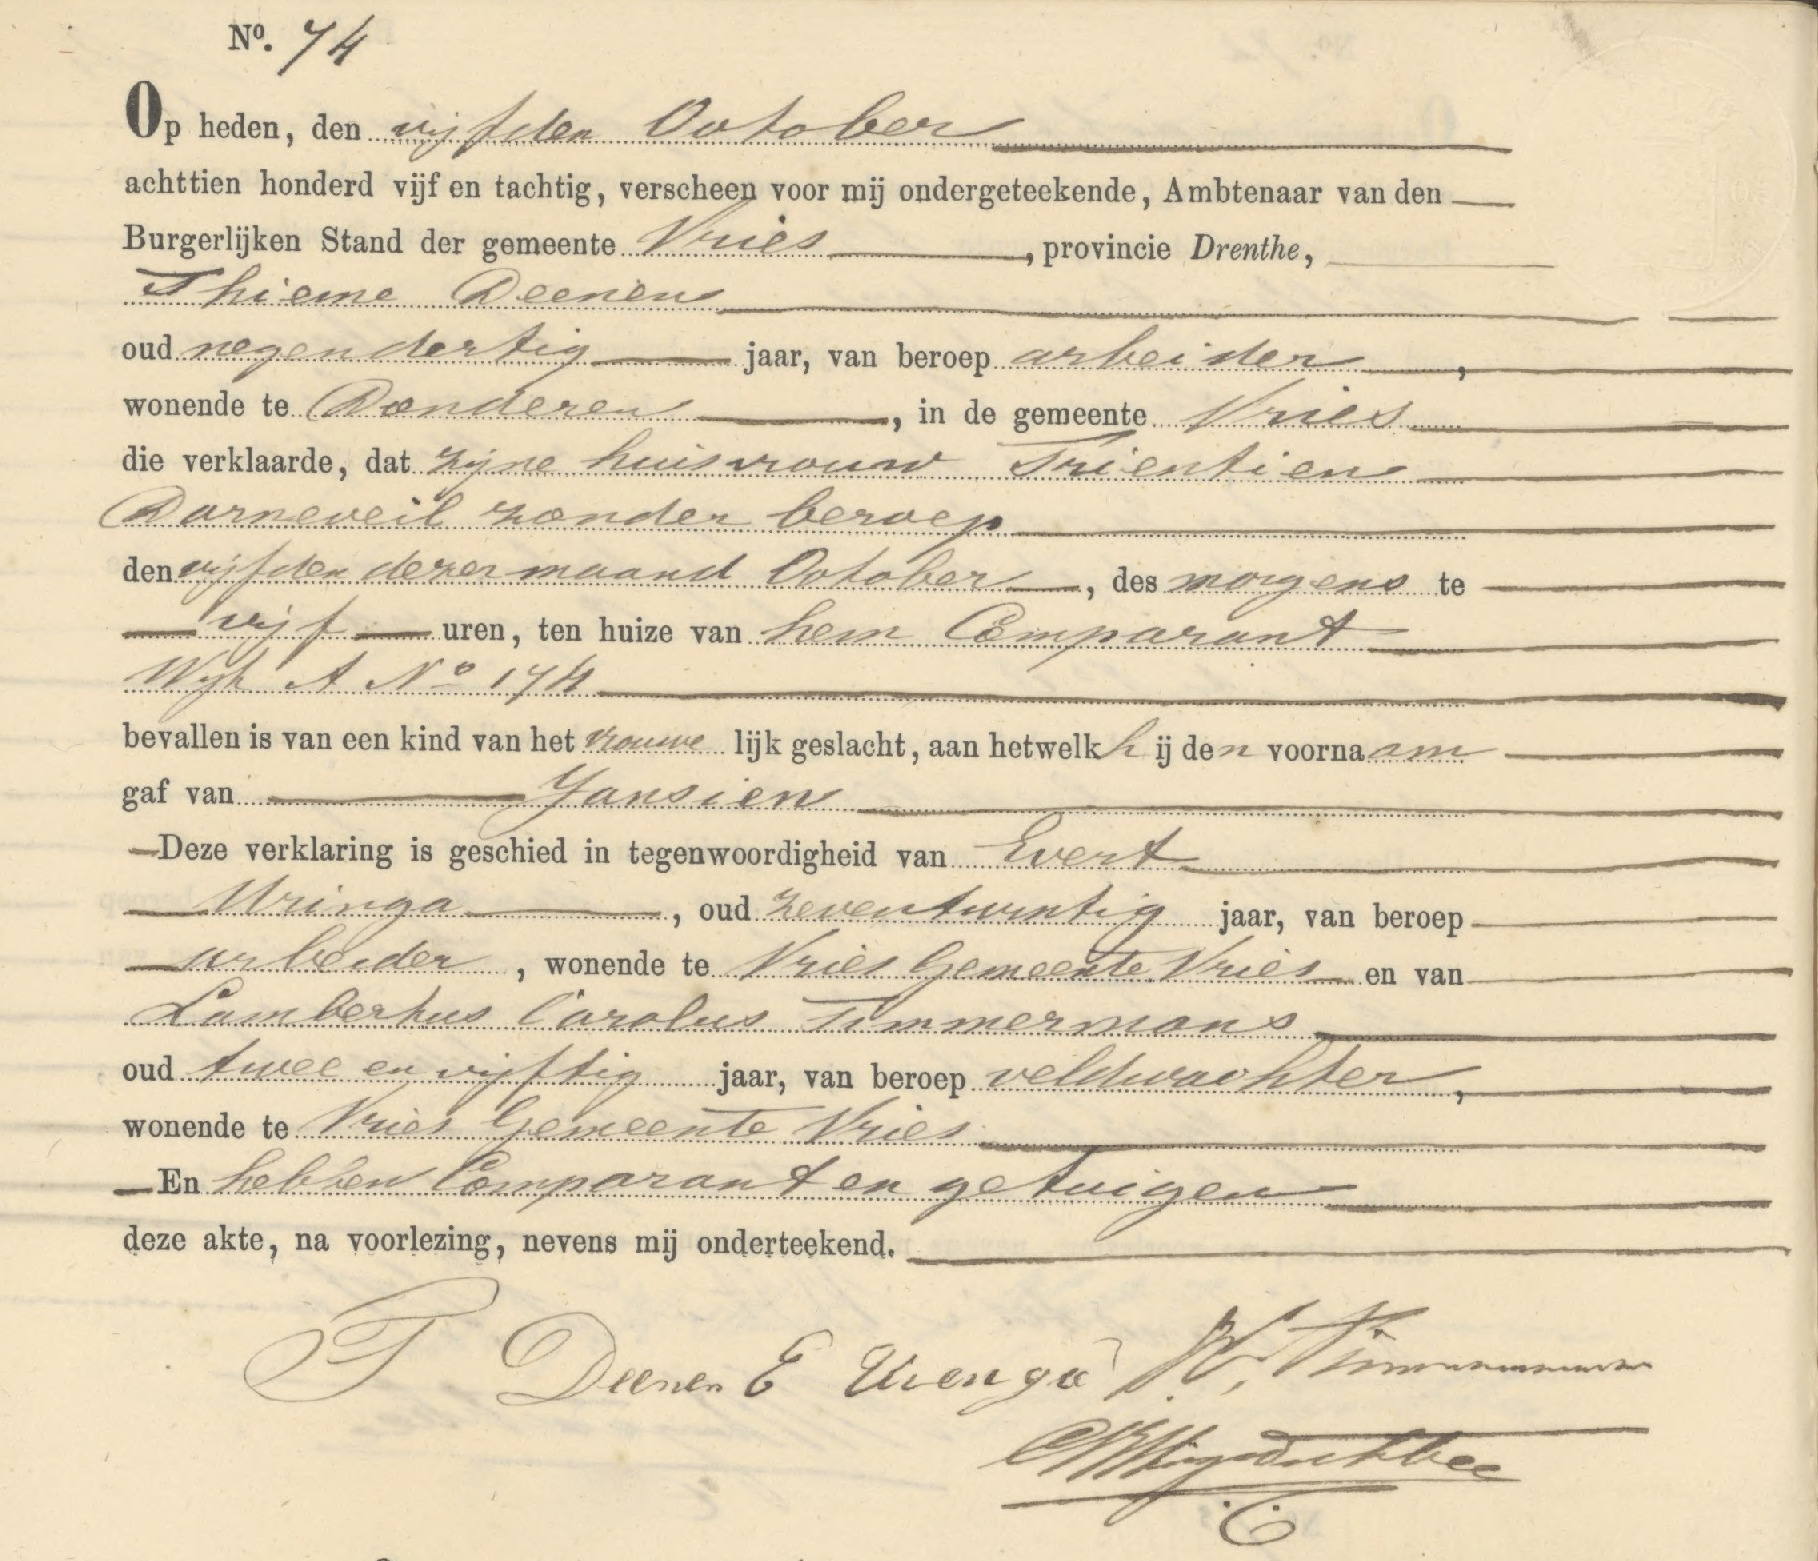 Nº. 74
Op heden, den vijfden October
achttien honderd vijf en tachtig, verscheen voor mij ondergeteekende, Ambtenaar van den
Burgerlijken Stand der gemeente Vries, provincie Drenthe,
Thieme Deenen
oud negendertig jaar, van beroep arbeider,
wonende te Donderen, in de gemeente Vries
die verklaarde, dat zijne huisvrouw Trientien
Darneveil zonder beroep
den vijfden dezer maand October, des morgens te
vijf uren, ten huize van hem Comparant
Wijk A Nº 174
bevallen is van een kind van het vrouwelijk geslacht, aan hetwelk hij den voornaam
gaf van Jansien
Deze verklaring is geschied in tegenwoordigheid van Evert
Uringa, oud zeventwintig jaar, van beroep
arbeider, wonende te Vries Gemeente Vries en van
Lambertus Carolus Timmermans
oud twee en vijftig jaar, van beroep veldwachter,
wonende te Vries Gemeente Vries
En hebben Comparant en getuigen
deze akte, na voorlezing, nevens mij onderteekend.
T Deenen E Urenga